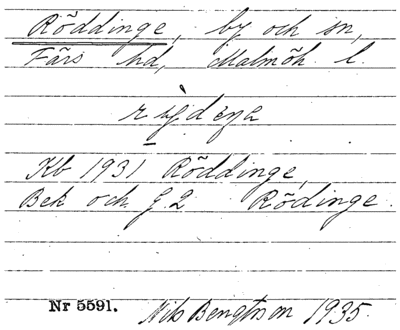 Röddinge, by och sn,
Färs hd, Malmöh. l.
Kb 1931 Röddinge,
Bek och G. 2 Rödinge.
Nr 5591. Nils Bengtson 1935.